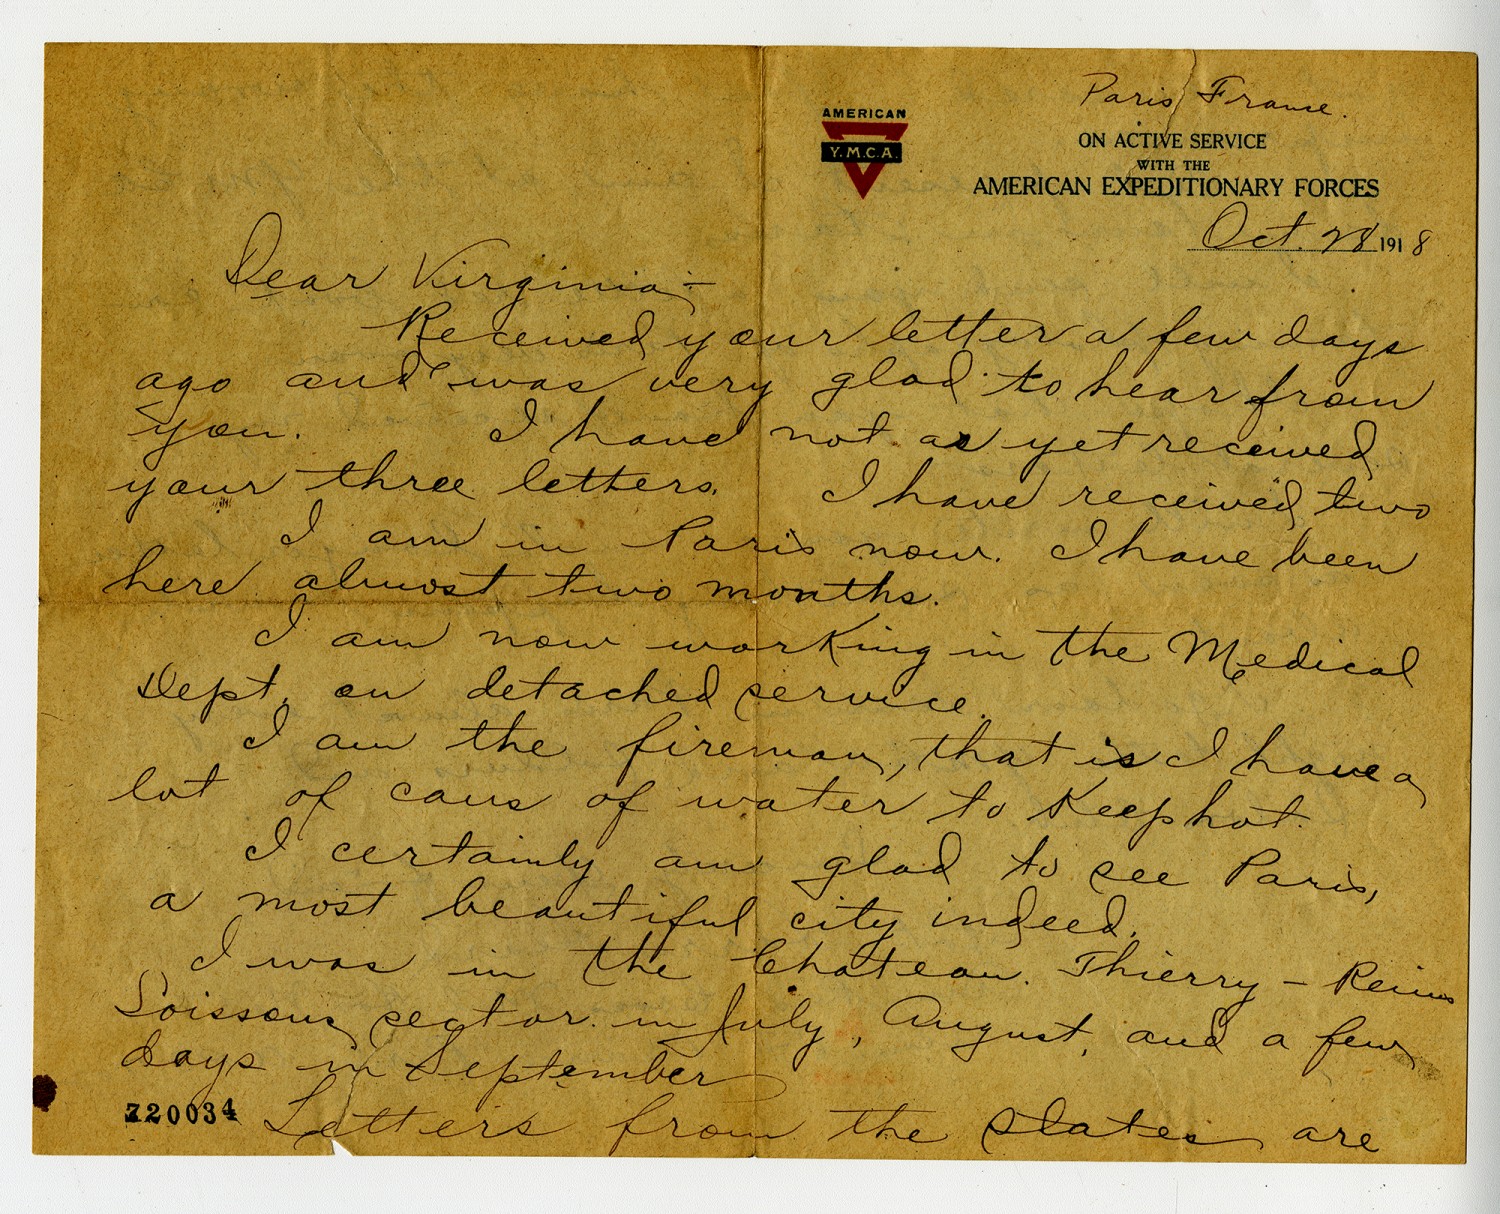 Paris France.
AMERICAN
Y.M.C.A.
ON ACTIVE SERVICE
WITH THE
AMERICAN EXPEDITIONARY FORCES
Oct. 28 1918
Dear Virginia:-
Received your letter a few days
ago and was very glad to hear from
you. I have not as yet received
your three letters. I have received two
I am in Paris now. I have been
here almost two months.
I am now working in the Medical
Dept. on detached service.
I am the fireman, that is I have a
lot of cans of water to keep hot.
I certainly am glad to see Paris,
a most beautiful city indeed.
I was in the Chateau. Thierry - Reims
Soissons sector in July, August, and a few
days in September
720034
Letters from the states are